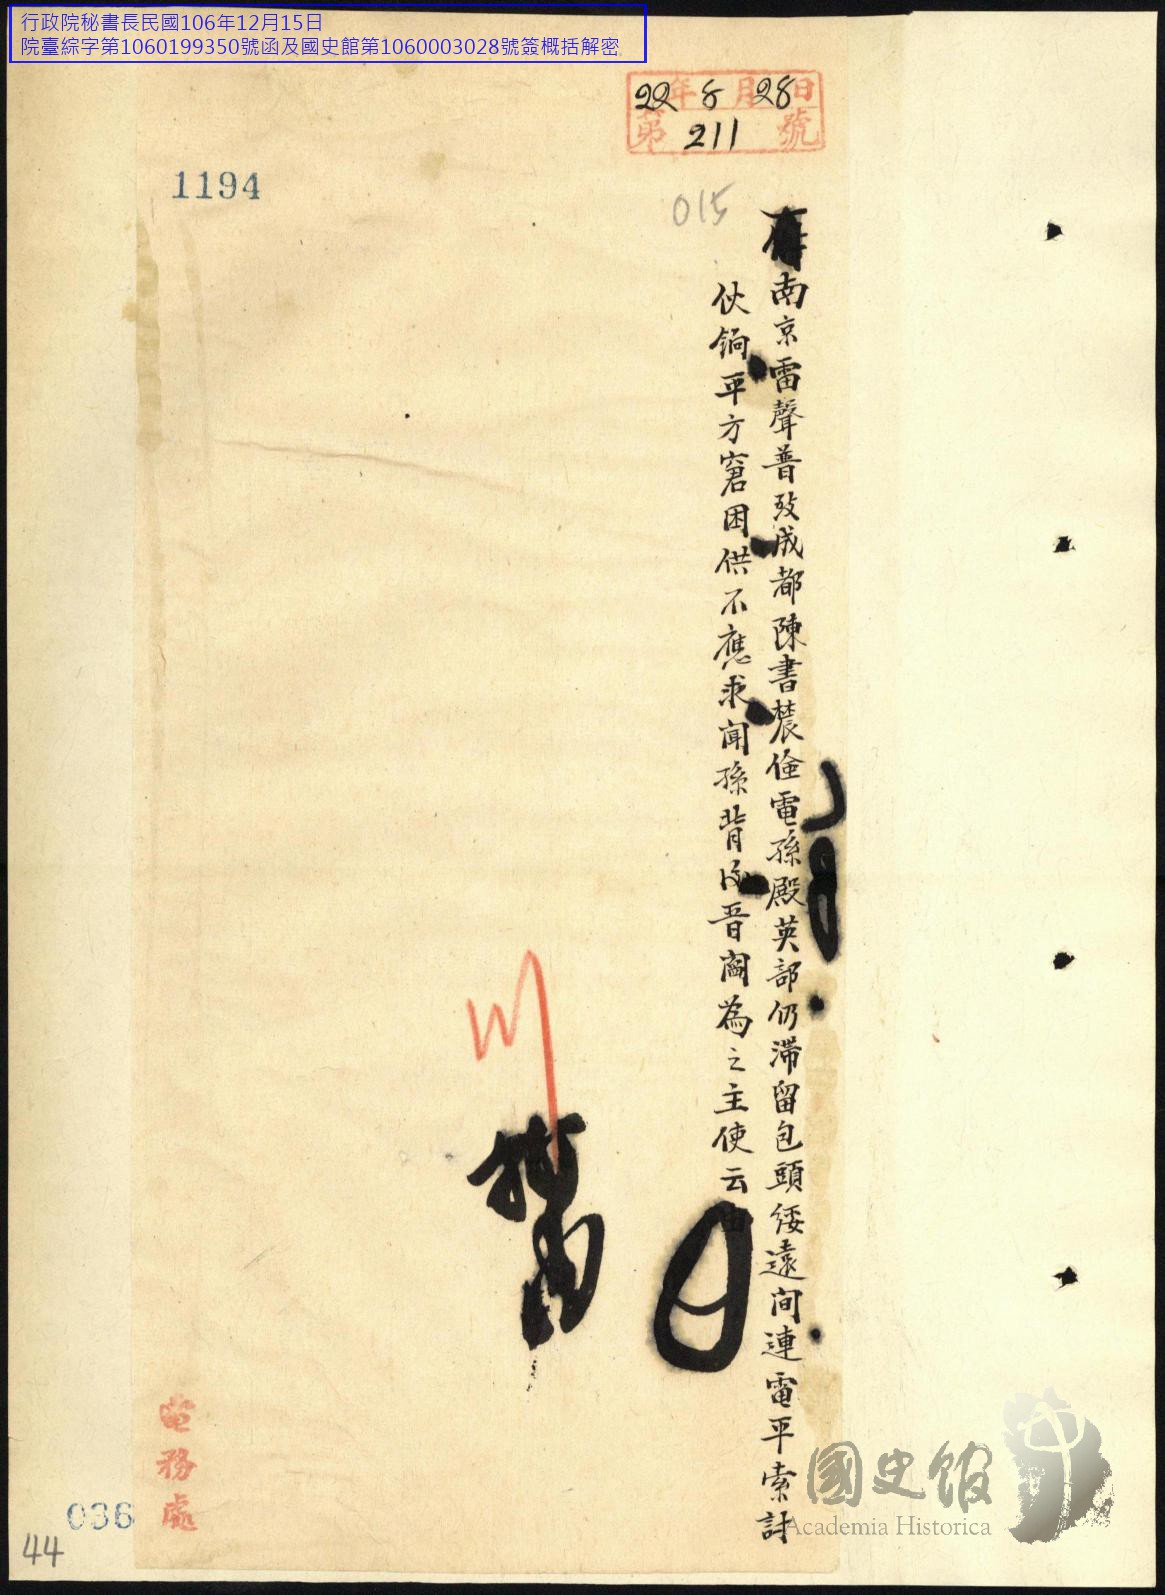 行政院秘書長民國106年12月15日
院臺綜字第1060199350號函及國史館第1060003028號簽概括解密
22年8月28日
第211號
1194
015
南京雷聲普致成都陳書農儉電孫殿英部仍滯留包頭綏遠间連電平索討
伙餉平方窘困供不應求闻孫背後晋閻為之主使云
電務處
036
44
國史館
Academia Historica